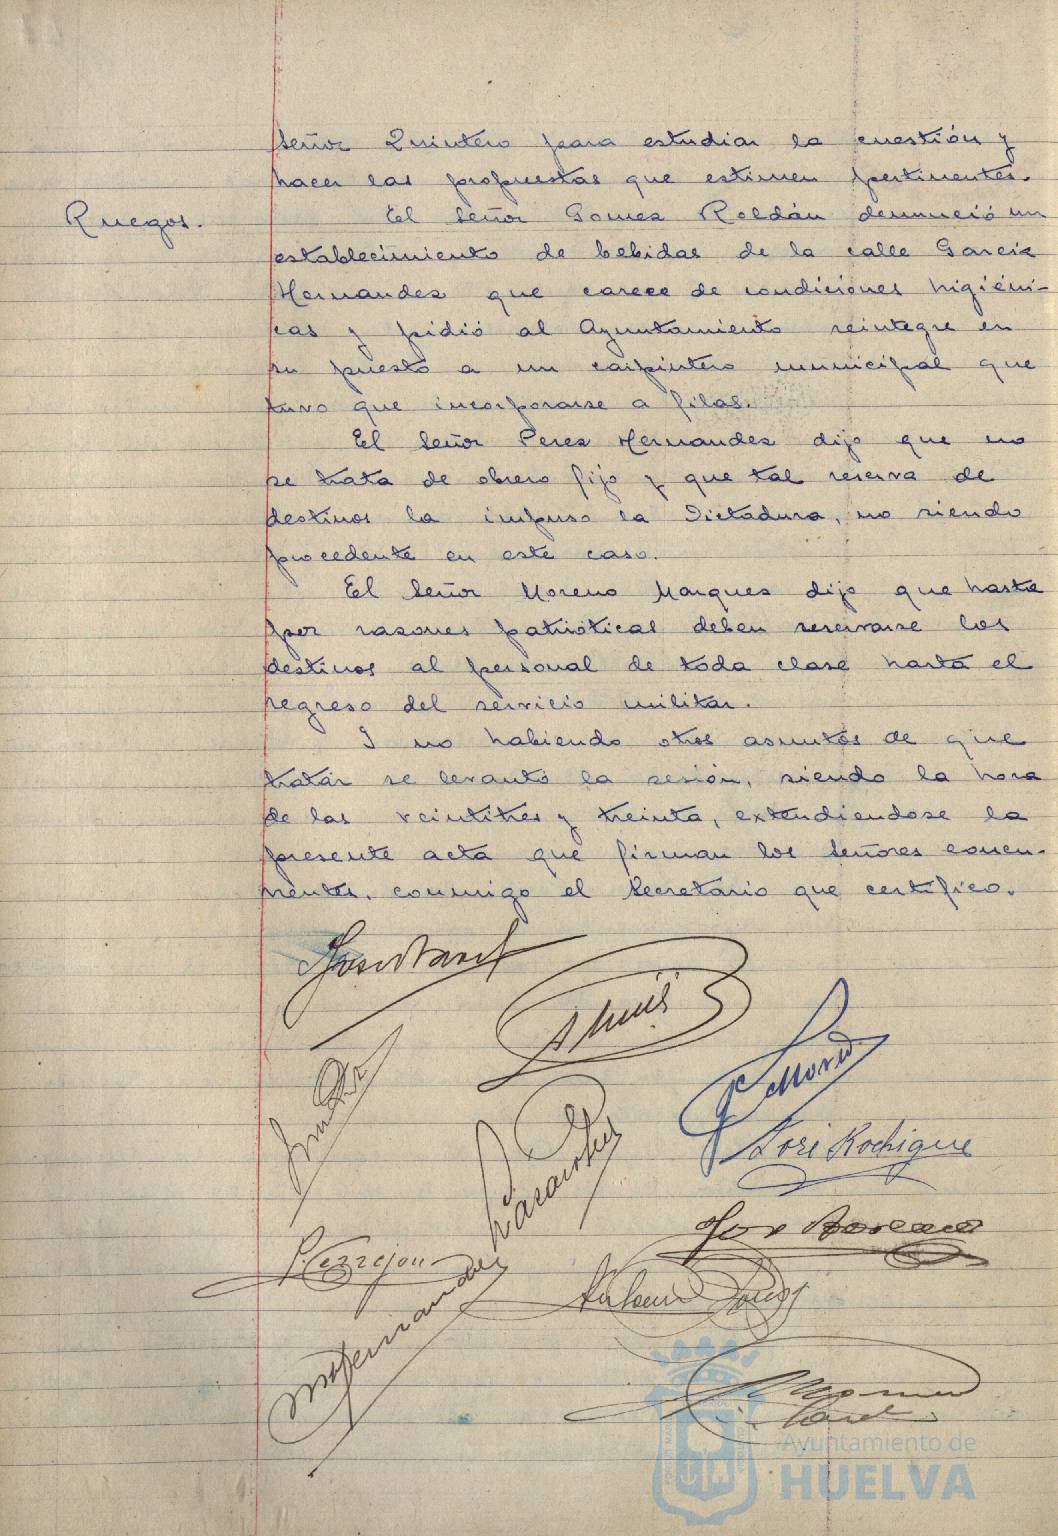 Señor Quintero para estudiar la cuestión y
hacer las propuestas que estimen pertinentes.
Ruegos.
El Señor Gomez Roldán denunció un
establecimiento de bebidas de la calle Garcia
Hernandez que carece de condiciones higiéni-
cas y pidió al Ayuntamiento reintegre en
su puesto a un carpintero municipal que
tuvo que incorporarse a filas.
El Señor Perez Hernandez dijo que no
se trata de obrero fijo y que tal reserva de
destinos la impuso la Dictadura, no siendo
procedente en este caso.
El Señor Moreno Marquez dijo que hasta
por razones patrióticas deben reservarse los
destinos al personal de toda clase hasta el
regreso del servicio militar.
I no habiendo otros asuntos de que
tratar se levantó la sesión, siendo la hora
de las veintitres y treinta, extendiendose la
presente acta que firman los Señores concu-
rrentes, conmigo el Secretario que certifico.
José Rodrigue
P. Cerrejon
Ayuntamiento de
HUELVA